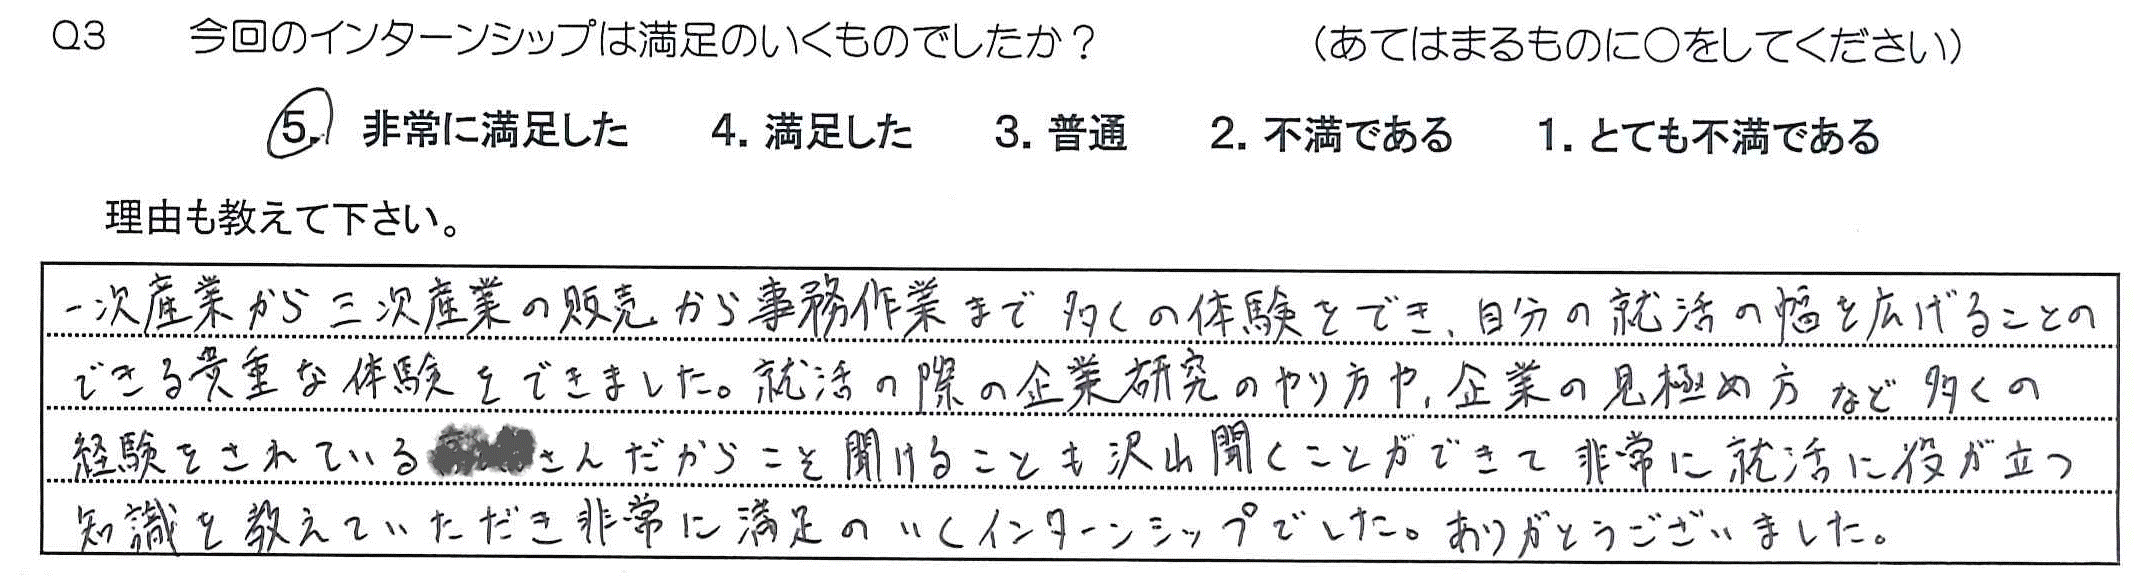 Q3 今回のインターンシップは満足のいくものでしたか？ （あてはまるものに○をしてください）
5. 非常に満足した 4. 満足した 3. 普通 2. 不満である 1. とても不満である
理由も教えて下さい。
一次産業から三次産業の販売から事務作業まで多くの体験をでき、自分の就活の幅を広げることの
できる貴重な体験をできました。就活の際の企業研究のやり方や、企業の見極め方など多くの
経験をされているさんだからこそ聞けることも沢山聞くことができて非常に就活に役が立つ
知識を教えていただき非常に満足のいくインターンシップでした。ありがとうございました。